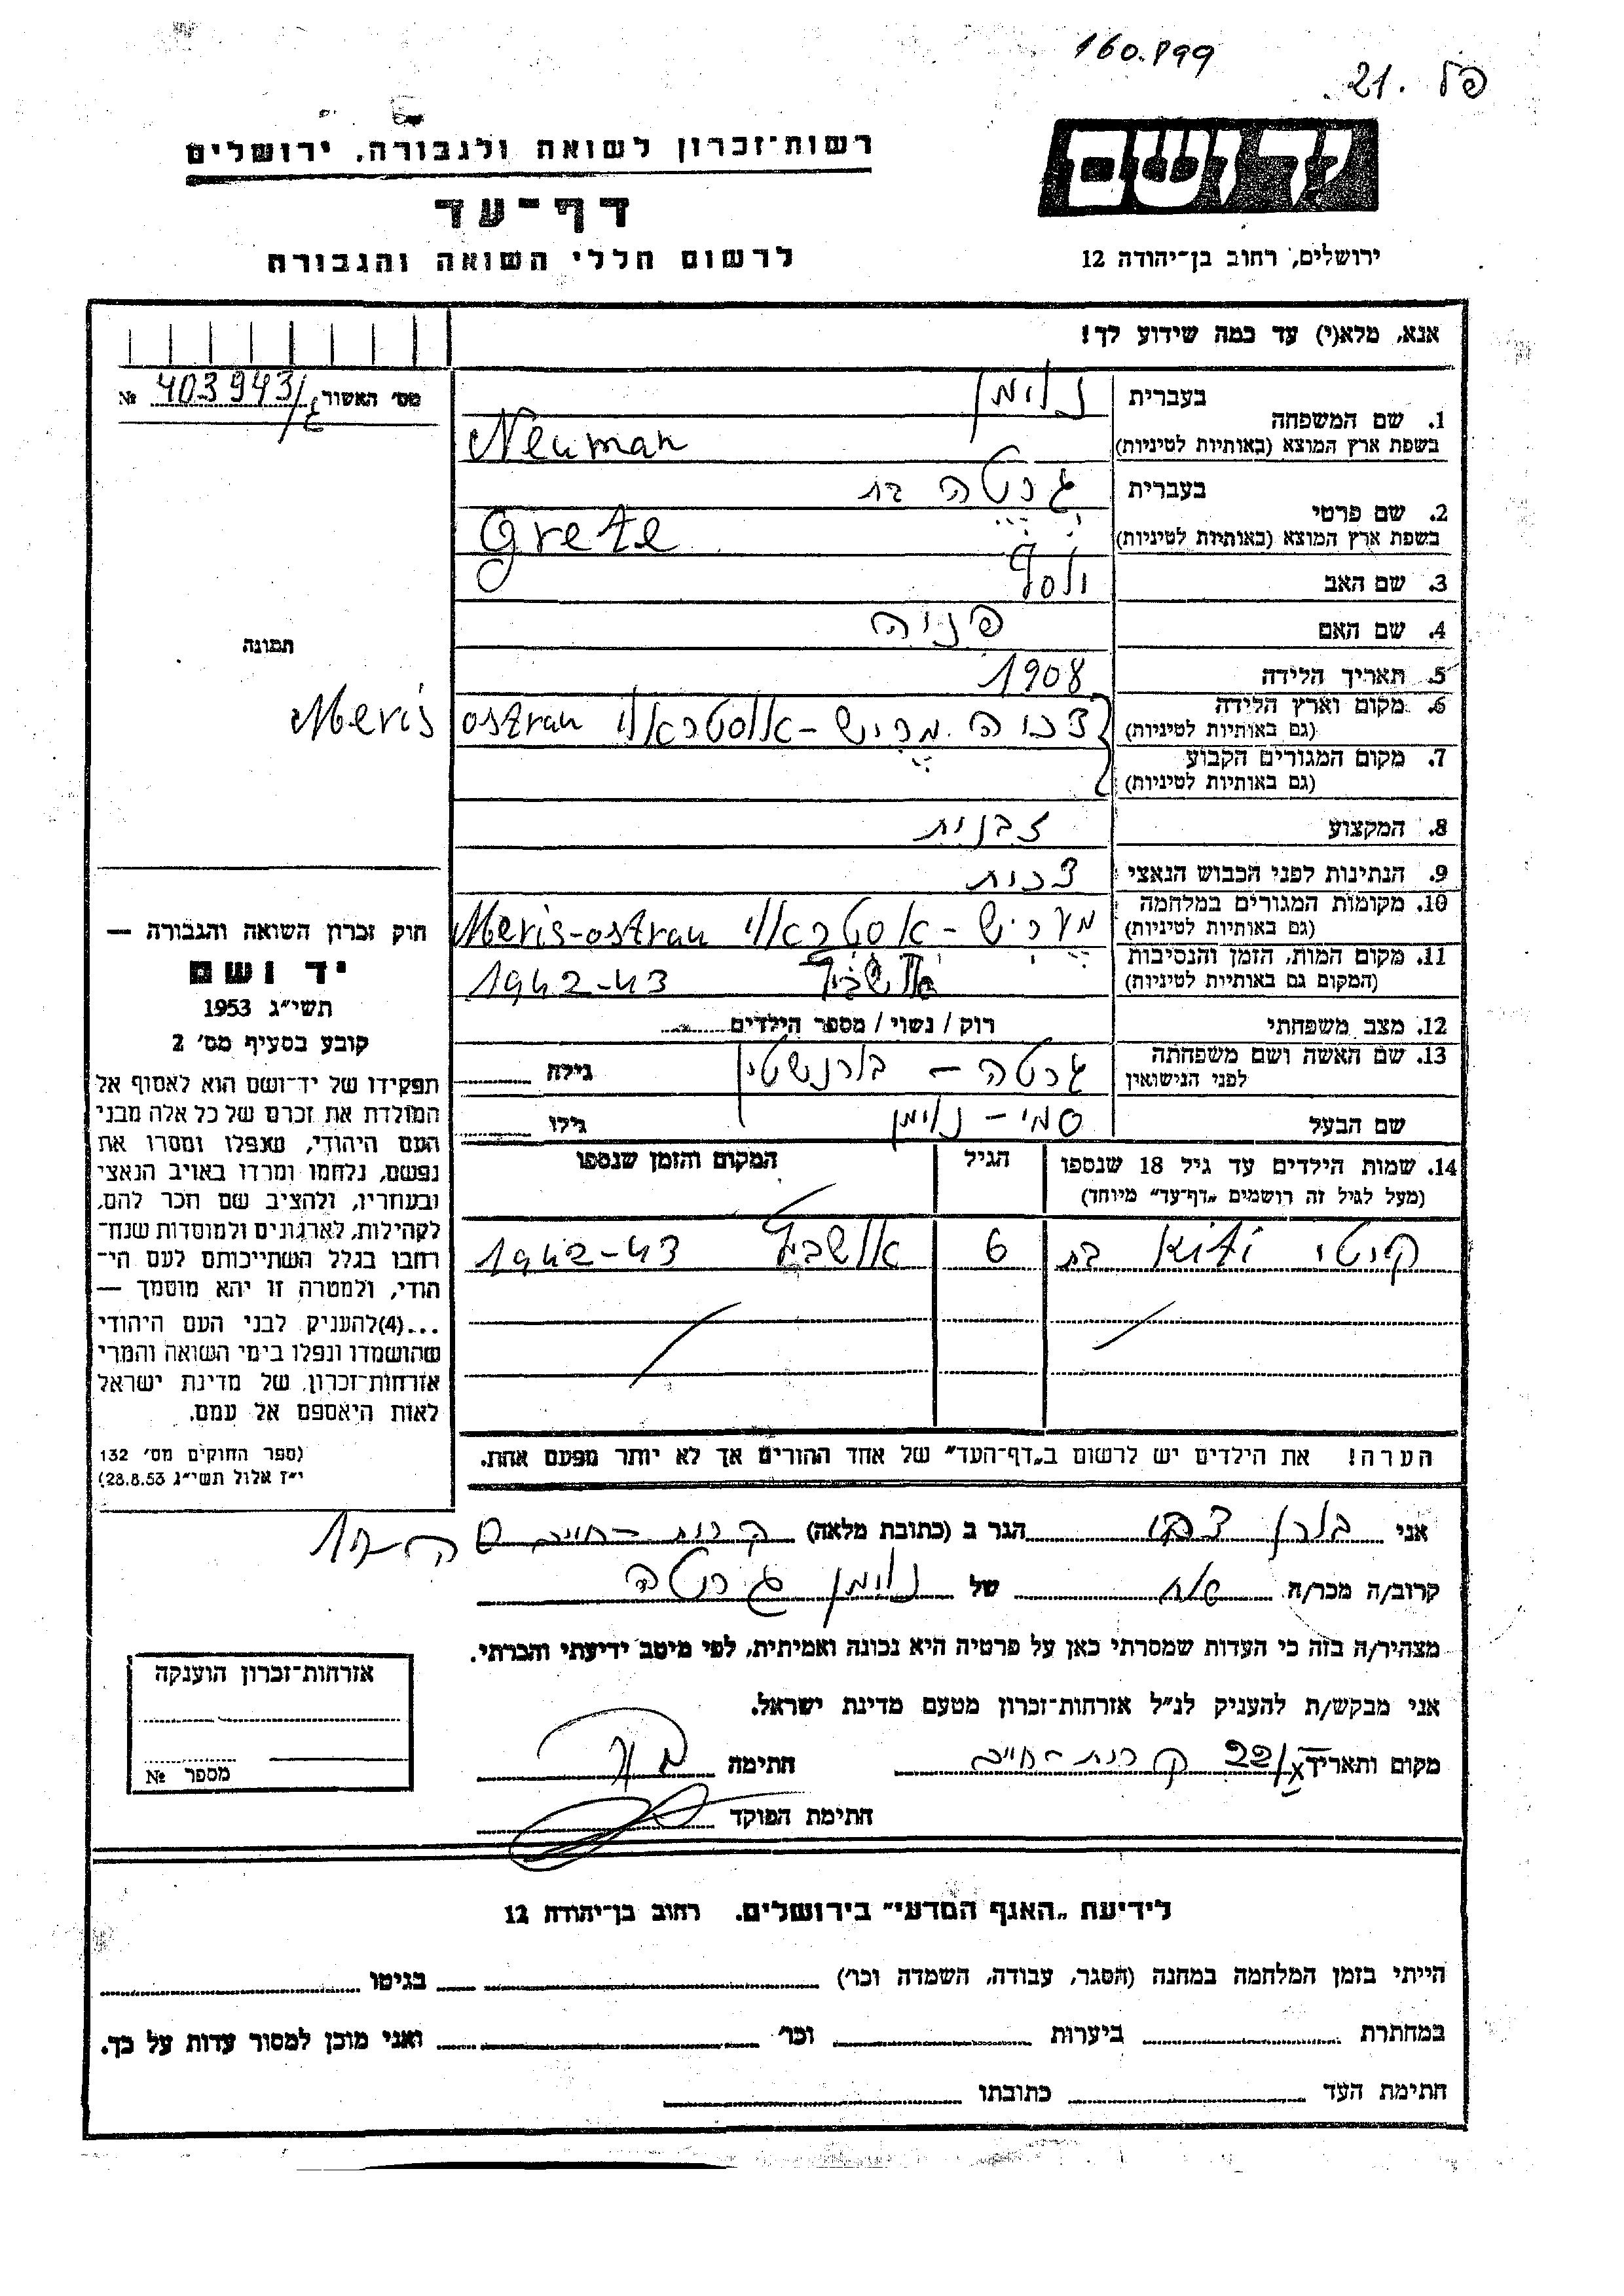 160.899
פל .21
רשות־זכרון לשואה ולגבורה, ירושלים
יד ושם
דף־עד
לרשום חללי השואה והגבורה
ירושלים, רחוב בן־יהודה 12
אנא, מלא(י) עד כמה שידוע לך!
מס׳ האשור 403943/ №
1. שם המשפחה
בעברית נוימן
בשפת ארץ המוצא (באותיות לטיניות) Neuman
2. שם פרטי
בעברית גרטה בת
בשפת ארץ המוצא (באותיות לטיניות) Grete
3. שם האב יוסף
4. שם האם פניה
תמונה
5. תאריך הלידה 1908
6. מקום וארץ הלידה
(גם באותיות לטיניות) צכיה מריש-אוסטראוי Meris ostrau
7. מקום המגורים הקבוע
(גם באותיות לטיניות)
8. המקצוע זבנית
9. הנתינות לפני הכבוש הנאצי צכית
10. מקומות המגורים במלחמה
(גם באותיות לטיניות) מעריש-אסטראוי Meris-ostrau
11. מקום המות, הזמן והנסיבות
(המקום גם באותיות לטיניות) אושביץ 1942-43
12. מצב משפחתי רוק / נשוי / מספר הילדים
13. שם האשה ושם משפחתה
לפני הנישואין גרטה - בורנשטין גילה
שם הבעל סמי - נוימן גילו
14. שמות הילדים עד גיל 18 שנספו
(מעל לגיל זה רושמים „דף־עד״ מיוחד)
הגיל
המקום והזמן שנספו
קיטי Kiti בת 6 אושביץ 1942-43
הערה! את הילדים יש לרשום ב„דף־העד״ של אחד ההורים אך לא יותר מפעם אחת.
חוק זכרון השואה והגבורה —
יד ושם
תשי״ג 1953
קובע בסעיף מס׳ 2
תפקידו של יד־ושם הוא לאסוף אל
המולדת את זכרם של כל אלה מבני
העם היהודי, שנפלו ומסרו את
נפשם, נלחמו ומרדו באויב הנאצי
ובעוזריו, ולהציב שם וזכר להם,
לקהילות, לארגונים ולמוסדות שנח־
רחבו בגלל השתייכותם לעם הי־
הודי, ולמטרה זו יהא מוסמך —
...(4)להעניק לבני העם היהודי
שהושמדו ונפלו בימי השואה והמרי
אזרחות־זכרון של מדינת ישראל
לאות היאספם אל עמם.
(ספר החוקים מס׳ 132
י״ז אלול תשי״ג 28.8.53)
אני בורן הגר ב (כתובת מלאה) קרית-חיים
קרוב/ה מכר/ה של נוימן גרטה
מצהיר/ה בזה כי העדות שמסרתי כאן על פרטיה היא נכונה ואמיתית, לפי מיטב ידיעתי והכרתי.
אני מבקש/ת להעניק לנ״ל אזרחות־זכרון מטעם מדינת ישראל.
מקום ותאריך 22/X קרית-חיים חתימה
חתימת הפוקד
אזרחות־זכרון הוענקה
מספר №
לידיעת „האגף המדעי״ בירושלים. רחוב בן־יהודה 12
הייתי בזמן המלחמה במחנה (הסגר, עבודה, השמדה וכו׳) בגיטו
במחתרת ביערות וכו׳ ואני מוכן למסור עדות על כך.
חתימת העד כתובתו